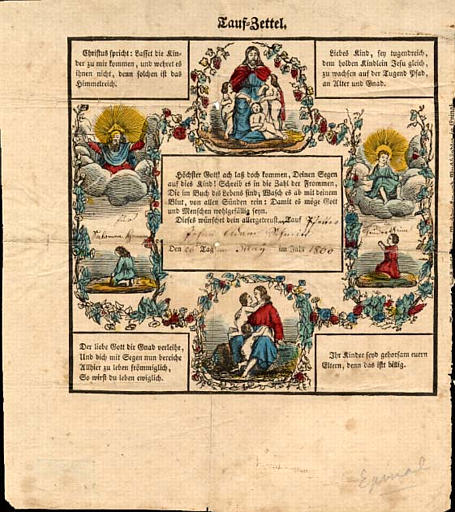 Tauf-Zettel.
Christus spricht: Lasset die Kin-
der zu mir kommen, und wehret es
ihnen nicht, denn solchen ist das
Himmelreich.
Liebes Kind, sey tugendreich,
dem holden Kindlein Jesu gleich,
zu wachsen auf der Tugend Pfad,
an Alter und Gnad.
Höchster Gott! ach laß doch kommen, Deinen Segen
auf dies Kind! Schreib es in die Zahl der Frommen,
Die im Buch des Lebens sind; Wasch es ab mit deinem
Blut, von allen Sünden rein: Damit es möge Gott
und Menschen wohlgefällig seyn.
Dieses wünschet dein allergetreust. Tauf
Den 26 Tag May im Jahr 1800
Der liebe Gott die Gnad verleihe,
Und dich mit Segen nun bereiche
Allhier zu leben frömmiglich,
So wirst du leben ewiglich.
Ihr Kinder seyd gehorsam euern
Eltern, denn das ist billig.